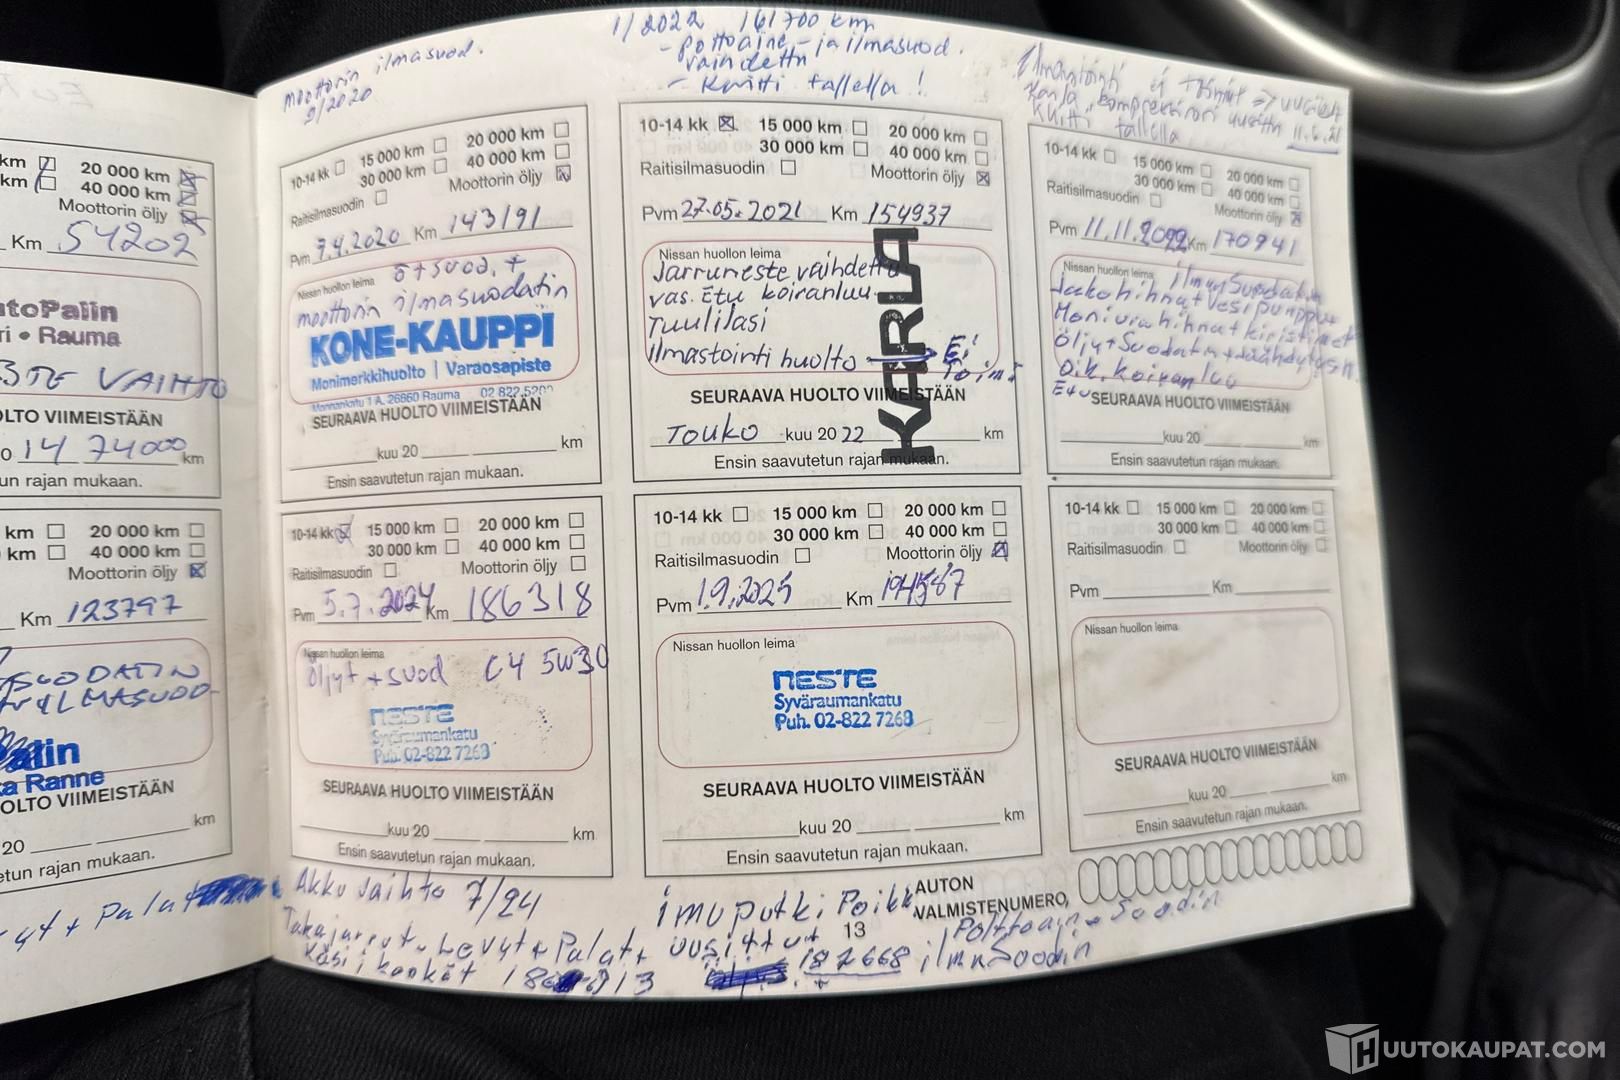 km 20 000 km
km 40 000 km
Moottorin öljy
Km 54202
utoPalin
ri • Rauma
STE VAIHTO
OLTO VIIMEISTÄÄN
14 74000 km
un rajan mukaan.
km 20 000 km
km 40 000 km
Moottorin öljy
Km 123797
SUODATIN
ILMASUOD
alin
ka Ranne
OLTO VIIMEISTÄÄN
20 km
etun rajan mukaan.
yt + Palat
moottorin ilmasuod.
9/2020
10-14 kk 15 000 km 20 000 km
30 000 km 40 000 km
Raitisilmasuodin Moottorin öljy
Pvm 7.4.2020 Km 143191
Nissan huollon leima ö+suod. +
moottorin ilmasuodatin
KONE-KAUPPI
Monimerkkihuolto | Varaosapiste
Monnankatu 1 A, 26660 Rauma 02 822 5200
SEURAAVA HUOLTO VIIMEISTÄÄN
kuu 20 km
Ensin saavutetun rajan mukaan.
10-14 kk 15 000 km 20 000 km
30 000 km 40 000 km
Raitisilmasuodin Moottorin öljy
Pvm 5.7.2024 Km 186318
Nissan huollon leima
öljyt + suod C4 5W30
NESTE
Syväraumankatu
Puh. 02-822 7268
SEURAAVA HUOLTO VIIMEISTÄÄN
kuu 20 km
Ensin saavutetun rajan mukaan.
Akku vaihto 7/24
Takajarrut, Levyt + Palat + uusittu
1/2022 161700 km
- Polttoaine- ja ilmasuod.
vaihdettu
- Kuitti tallella!
10-14 kk 15 000 km 20 000 km
30 000 km 40 000 km
Raitisilmasuodin Moottorin öljy
Pvm 27.05.2021 Km 154937
Nissan huollon leima
Jarruneste vaihdettu
vas. Etu koiranluu
Tuulilasi
Ilmastointi huolto Ei
Toimi
KARLA
SEURAAVA HUOLTO VIIMEISTÄÄN
Touko kuu 20 22 km
Ensin saavutetun rajan mukaan.
10-14 kk 15 000 km 20 000 km
30 000 km 40 000 km
Raitisilmasuodin Moottorin öljy
Pvm 1.9.2025 Km
Nissan huollon leima
NESTE
Syväraumankatu
Puh. 02-822 7268
SEURAAVA HUOLTO VIIMEISTÄÄN
kuu 20 km
Ensin saavutetun rajan mukaan.
imuputki
13
187668
Ilmastointi ei toiminut =>
Karla, kompressori uusittu 11.6.21
Kuitti tallella
10-14 kk 15 000 km 20 000 km
30 000 km 40 000 km
Raitisilmasuodin Moottorin öljy
Pvm 11.11.2022 Km 170941
Nissan huollon leima
Jakohihna + Vesipumppu +
Monivia hihna + kiristimet
Öljy + Suodatin + Jäähdytysn.
Oik. koiranluu
Etu
SEURAAVA HUOLTO VIIMEISTÄÄN
kuu 20 km
Ensin saavutetun rajan mukaan.
10-14 kk 15 000 km 20 000 km
30 000 km 40 000 km
Raitisilmasuodin Moottorin öljy
Pvm Km
Nissan huollon leima
SEURAAVA HUOLTO VIIMEISTÄÄN
kuu 20 km
Ensin saavutetun rajan mukaan.
AUTON
VALMISTENUMERO,
HUUTOKAUPAT.COM